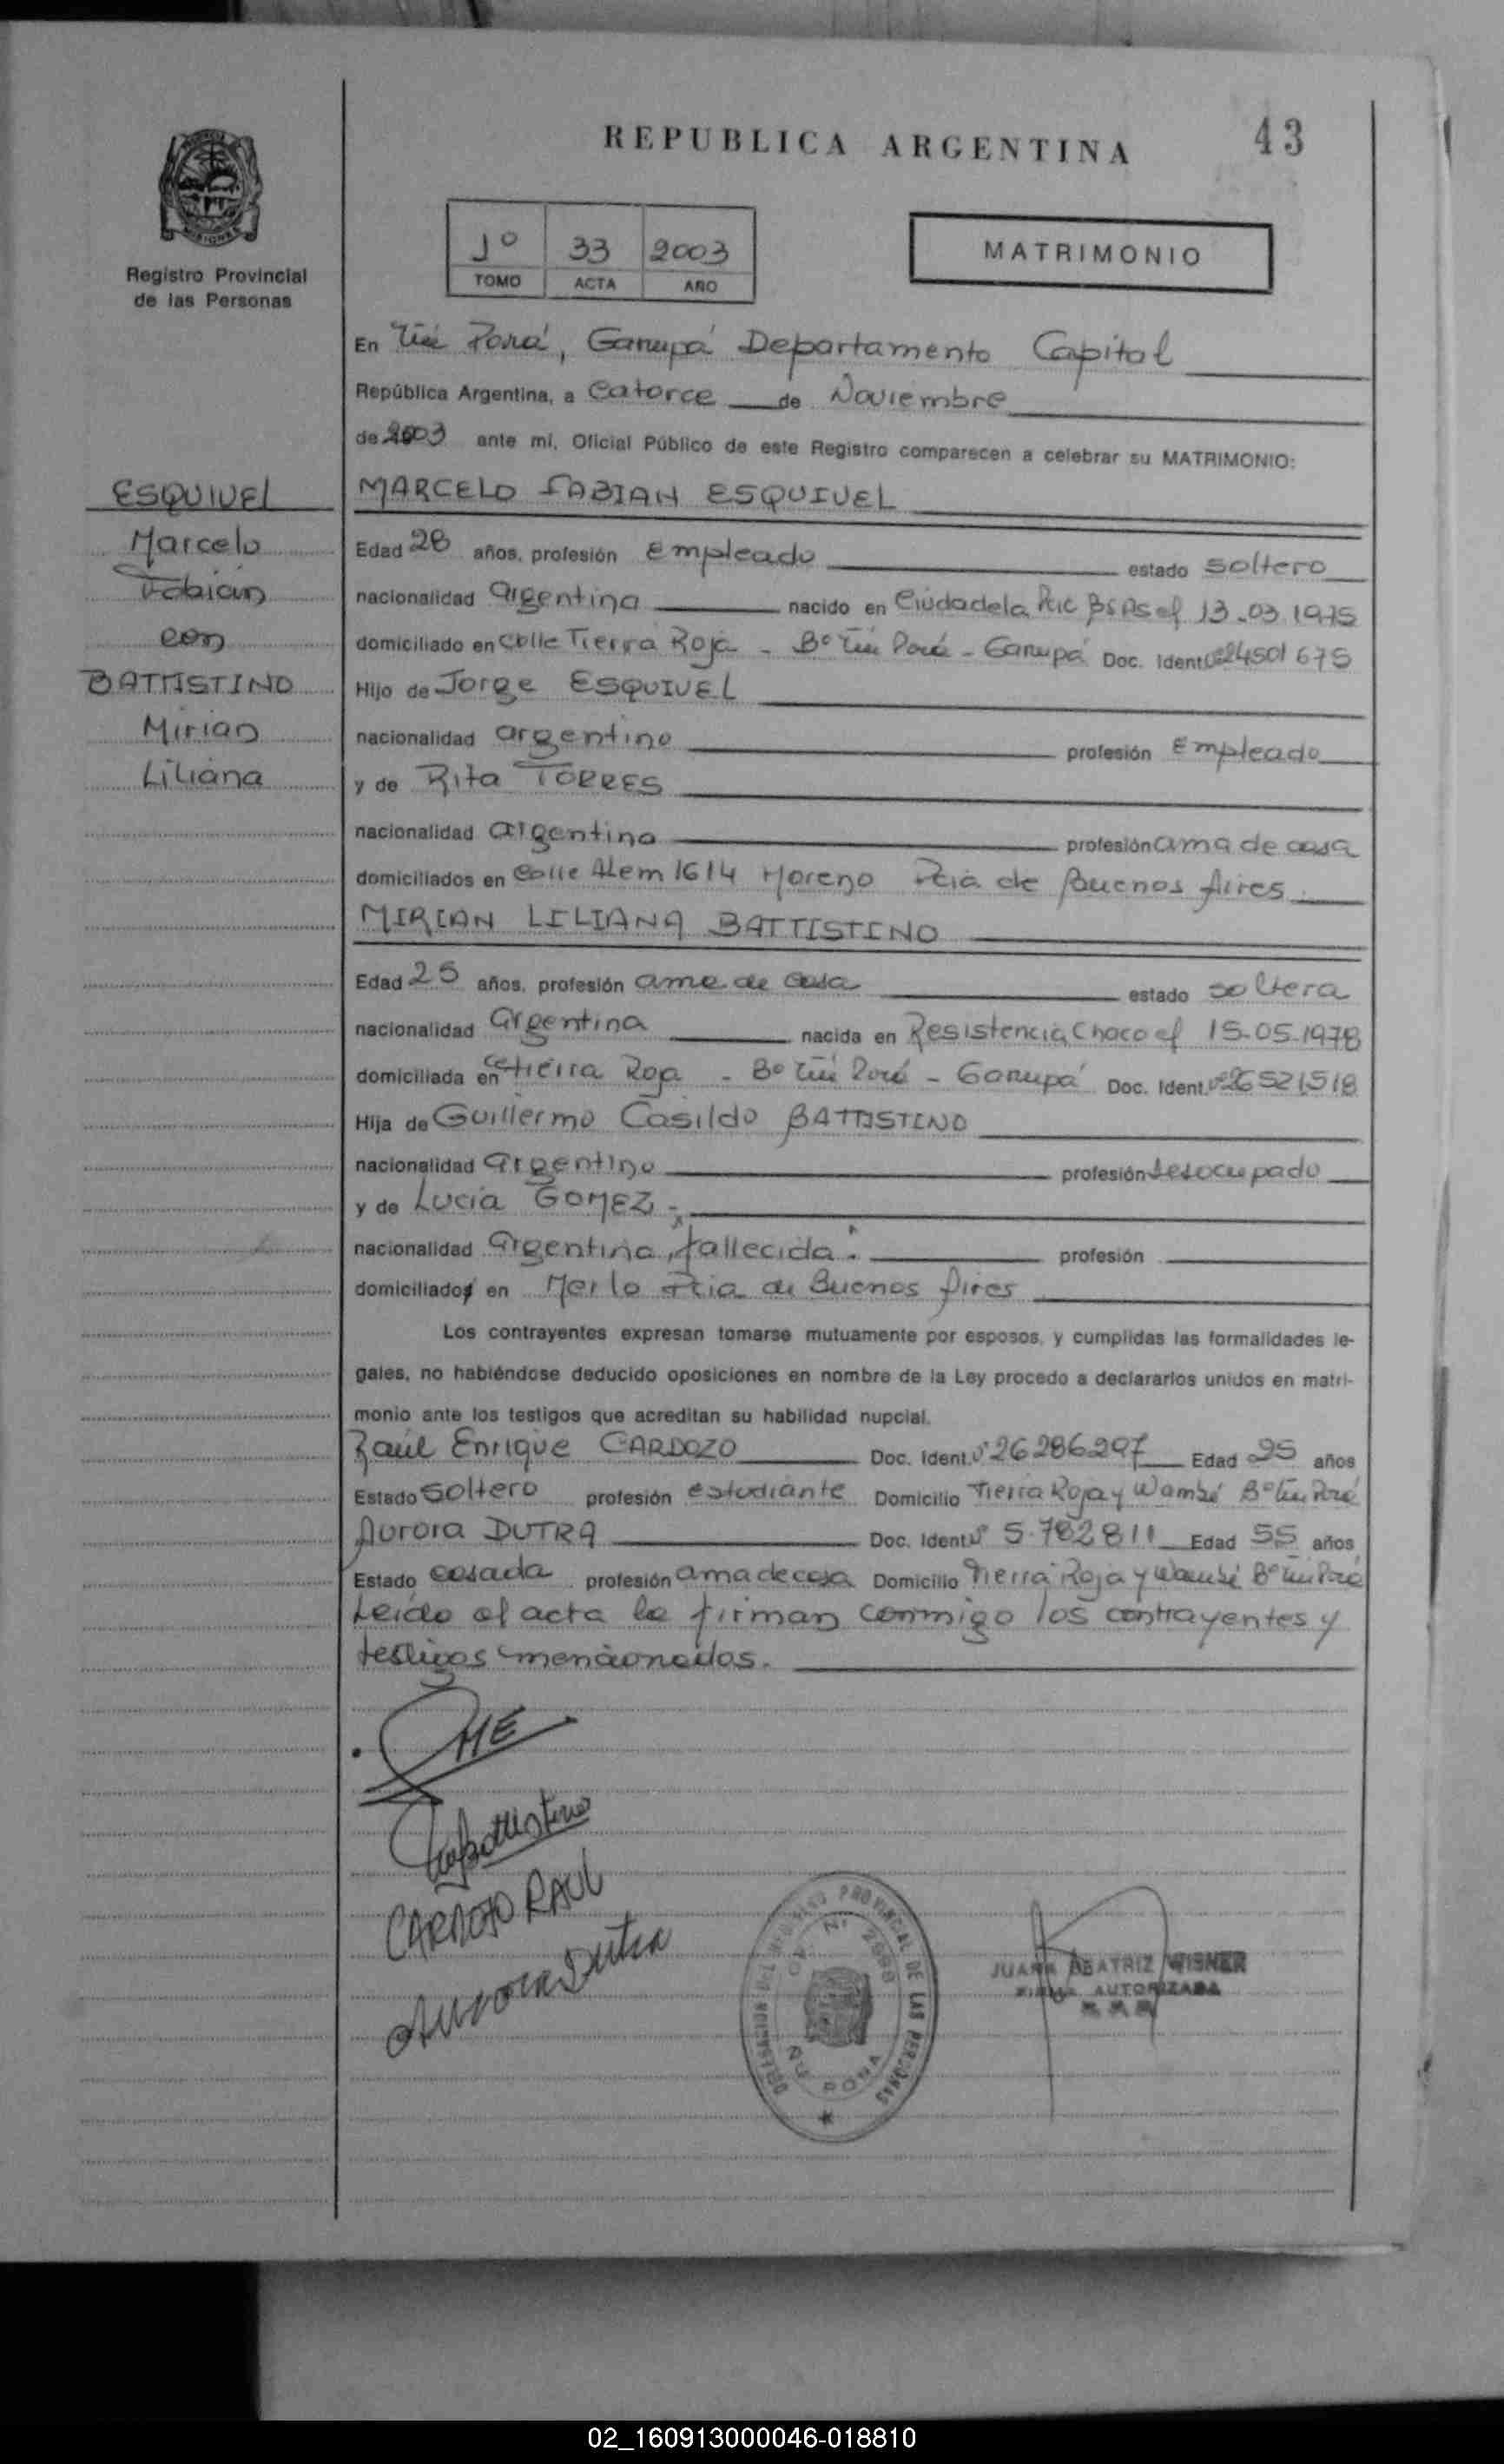 REPUBLICA ARGENTINA
43
MISIONES
Registro Provincial
de las Personas
1º 33 2003
TOMO ACTA AÑO
MATRIMONIO
En Ñú Porá, Garupá Departamento Capital
República Argentina, a Catorce de Noviembre
de 2003 ante mí, Oficial Público de este Registro comparecen a celebrar su MATRIMONIO:
ESQUIVEL
Marcelo
Fabián
con
BATTISTINO
Mirian
Liliana
MARCELO FABIAN ESQUIVEL
Edad 28 años, profesión Empleado estado soltero
nacionalidad argentina nacido en Ciudadela Pcic Bs As el 13-03-1975
domiciliado en Calle Tierra Roja - Bº Ñú Porá - Garupá Doc. Ident. Nº 24501675
Hijo de Jorge ESQUIVEL
nacionalidad argentino profesión Empleado
y de Rita TORRES
nacionalidad argentina profesión ama de casa
domiciliados en Calle Alem 1614 Moreno Pcia de Buenos Aires
MIRIAN LILIANA BATTISTINO
Edad 25 años, profesión ama de casa estado soltera
nacionalidad argentina nacida en Resistencia, Chaco el 15-05-1978
domiciliada en Ce Tierra Roja - Bº Ñú Porá - Garupá Doc. Ident. Nº 26521518
Hija de Guillermo Casildo BATTISTINO
nacionalidad argentino profesión desocupado
y de Lucia GOMEZ
nacionalidad argentina, fallecida. profesión
domiciliados en Merlo Pcia de Buenos Aires
Los contrayentes expresan tomarse mutuamente por esposos, y cumplidas las formalidades le-
gales, no habiéndose deducido oposiciones en nombre de la Ley procedo a declararlos unidos en matri-
monio ante los testigos que acreditan su habilidad nupcial.
Raúl Enrique CARDOZO Doc. Ident. Nº 26286297 Edad 25 años
Estado soltero profesión estudiante Domicilio Tierra Roja y Wambé Bº Ñú Porá
Aurora DUTRA Doc. Ident. Nº 5.782811 Edad 55 años
Estado casada profesión ama de casa Domicilio Tierra Roja y Wambé Bº Ñú Porá
Leído el acta la firman conmigo los contrayentes y
testigos mencionados.
ME
Battistino
CARDOZO RAUL
Aurora Dutra
DELEGACION DEL REGISTRO PROVINCIAL DE LAS PERSONAS
PORA
JUANA BEATRIZ WISNER
FIRMA AUTORIZADA
02_160913000046-018810